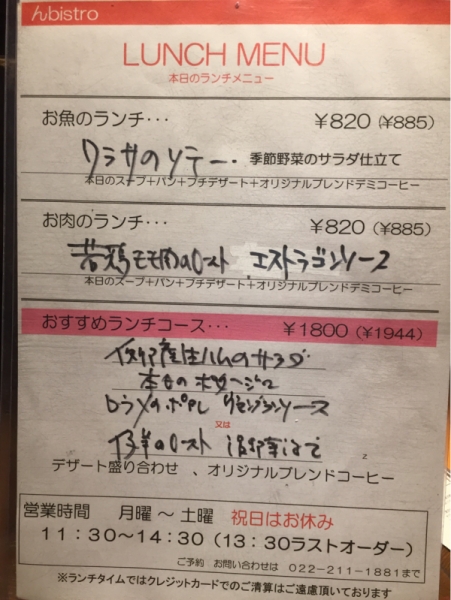 んbistro
LUNCH MENU
本日のランチメニュー
お魚のランチ・・・ ¥820 (¥885)
ワラサのソテー・ 季節野菜のサラダ仕立て
本日のスープ+パン+プチデザート+オリジナルブレンドデミコーヒー
お肉のランチ・・・ ¥820 (¥885)
若鶏モモ肉のロースト エストラゴンソース
本日のスープ+パン+プチデザート+オリジナルブレンドデミコーヒー
おすすめランチコース・・・ ¥1800 (¥1944)
イタリア産生ハムのサラダ
本日のポタージュ
のポワレ ソース
又は
仔羊のロースト
デザート盛り合わせ 、オリジナルブレンドコーヒー
営業時間 月曜～土曜 祝日はお休み
11:30～14:30 (13:30ラストオーダー)
ご予約 お問い合わせは 022-211-1881まで
※ランチタイムではクレジットカードでのご清算はご遠慮頂いております